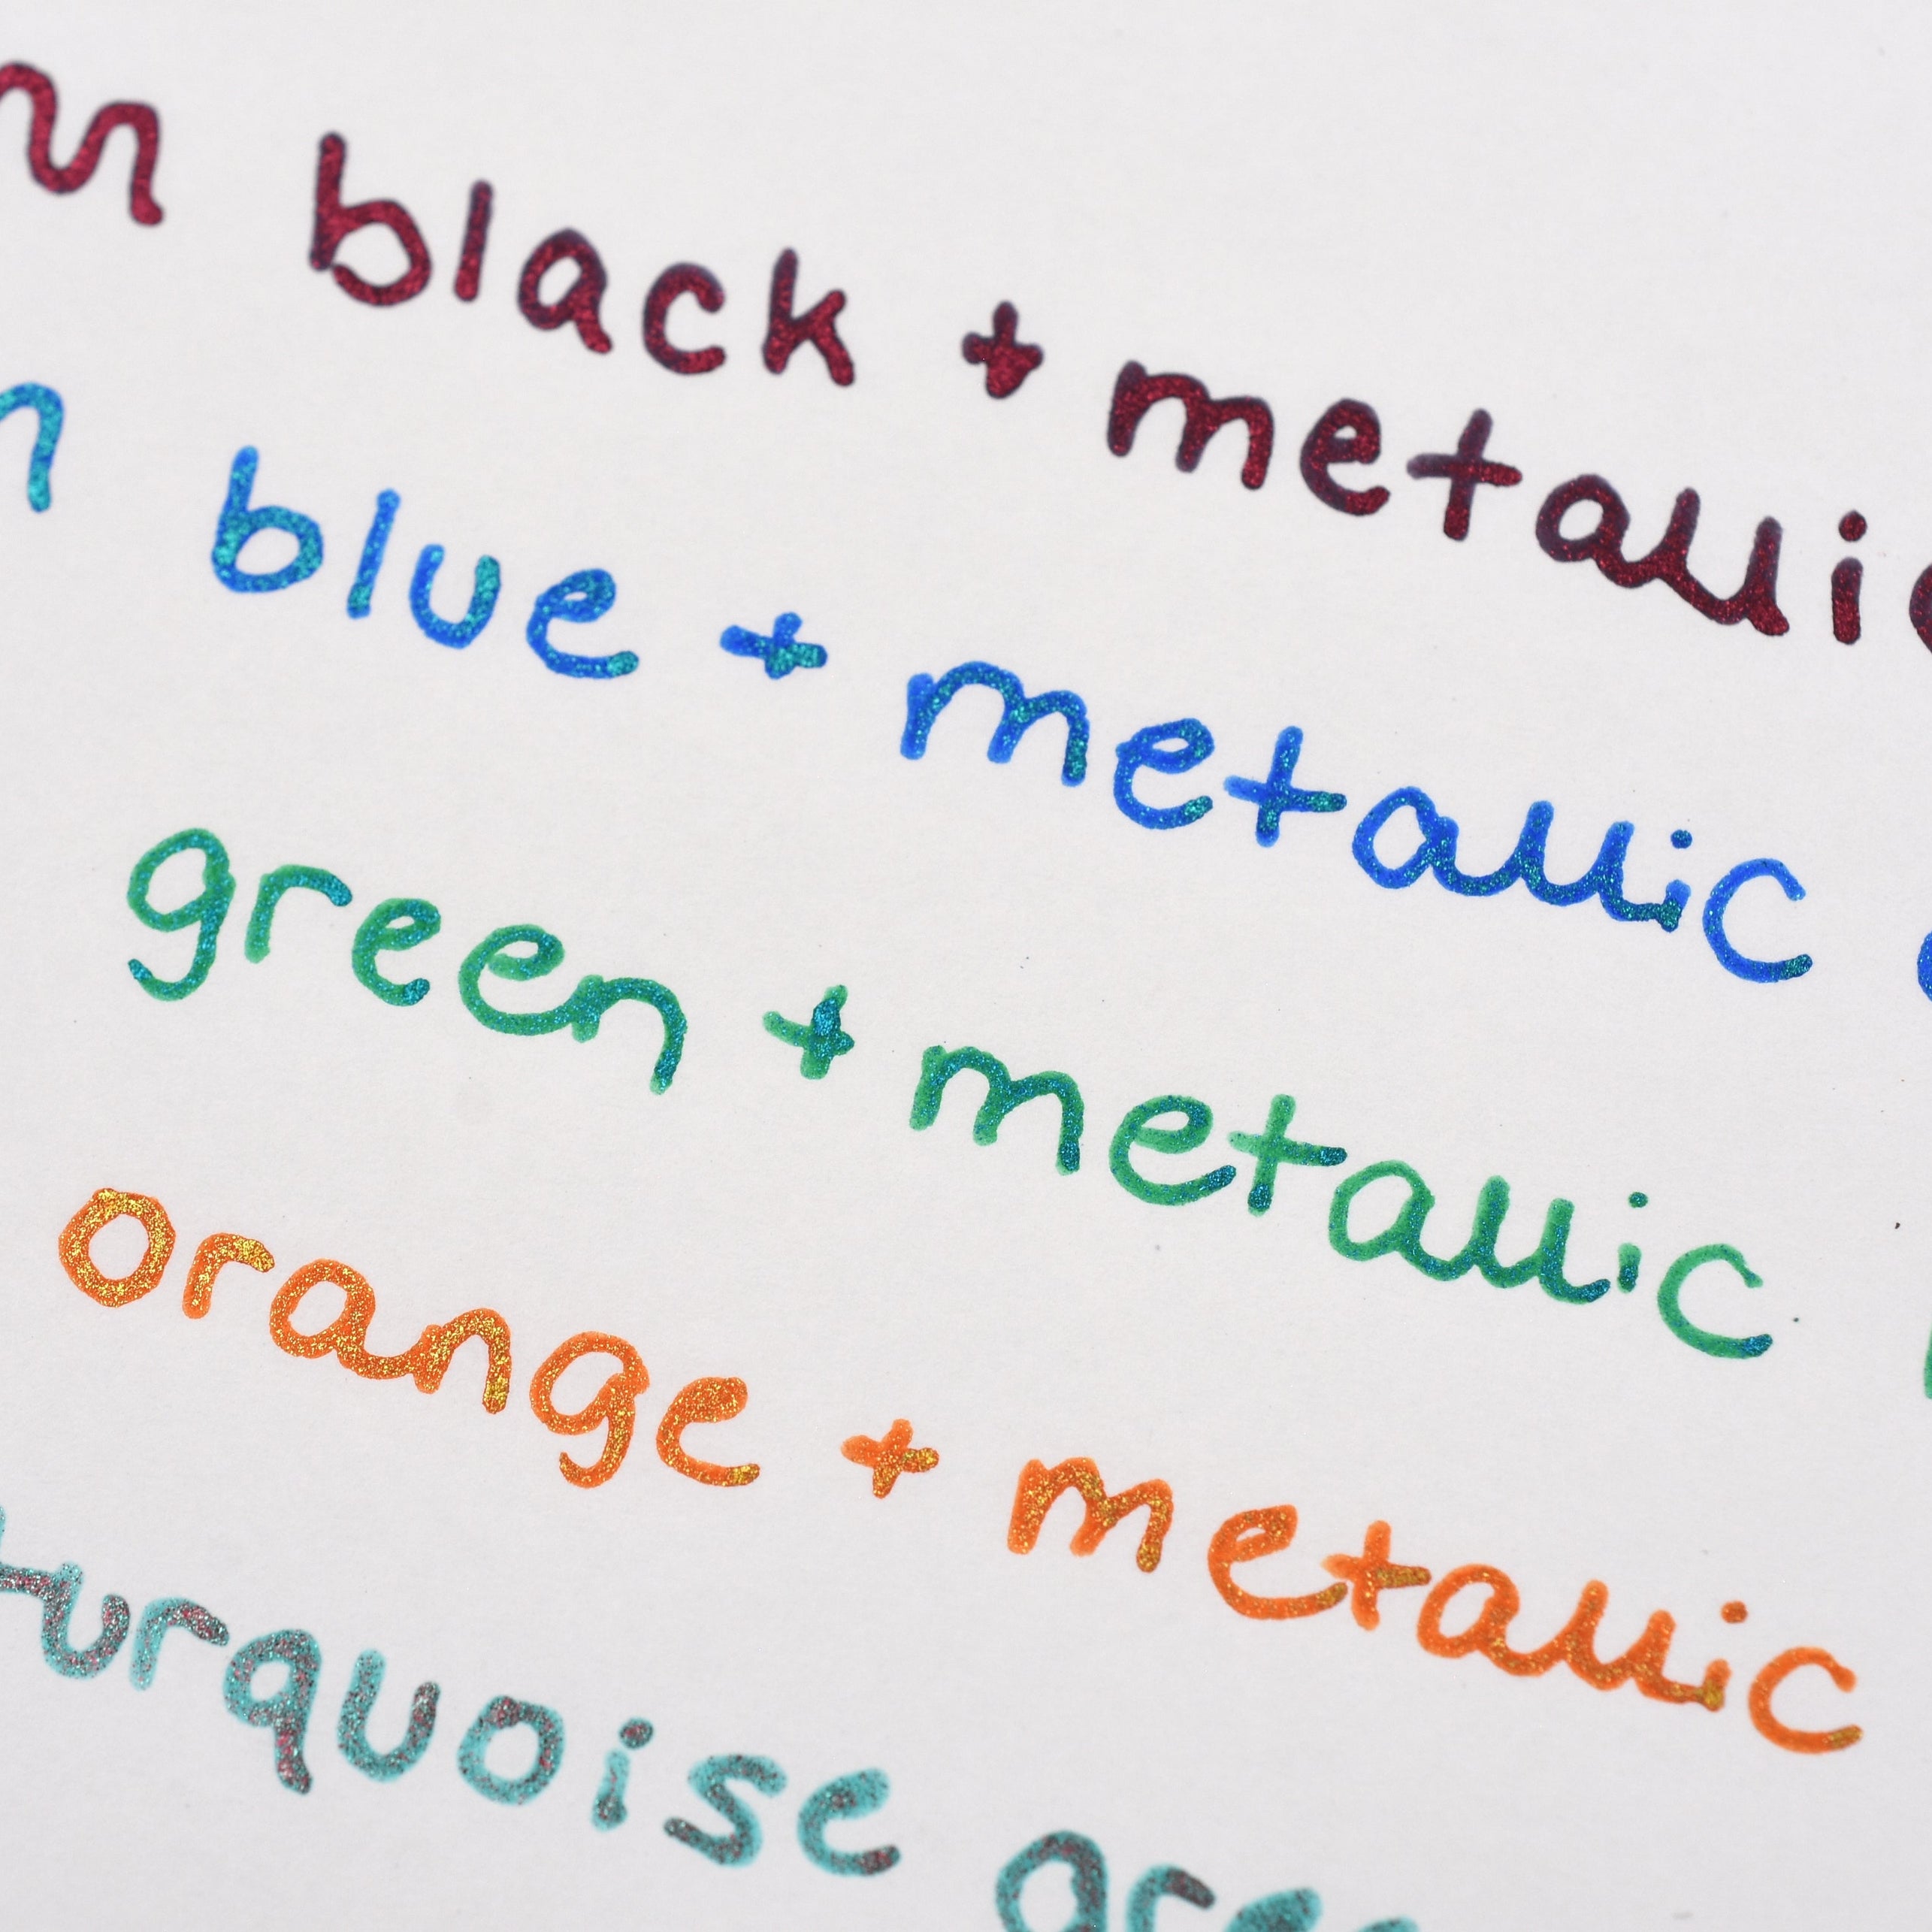 black + metallic
blue + metallic
green + metallic
orange + metallic
turquoise